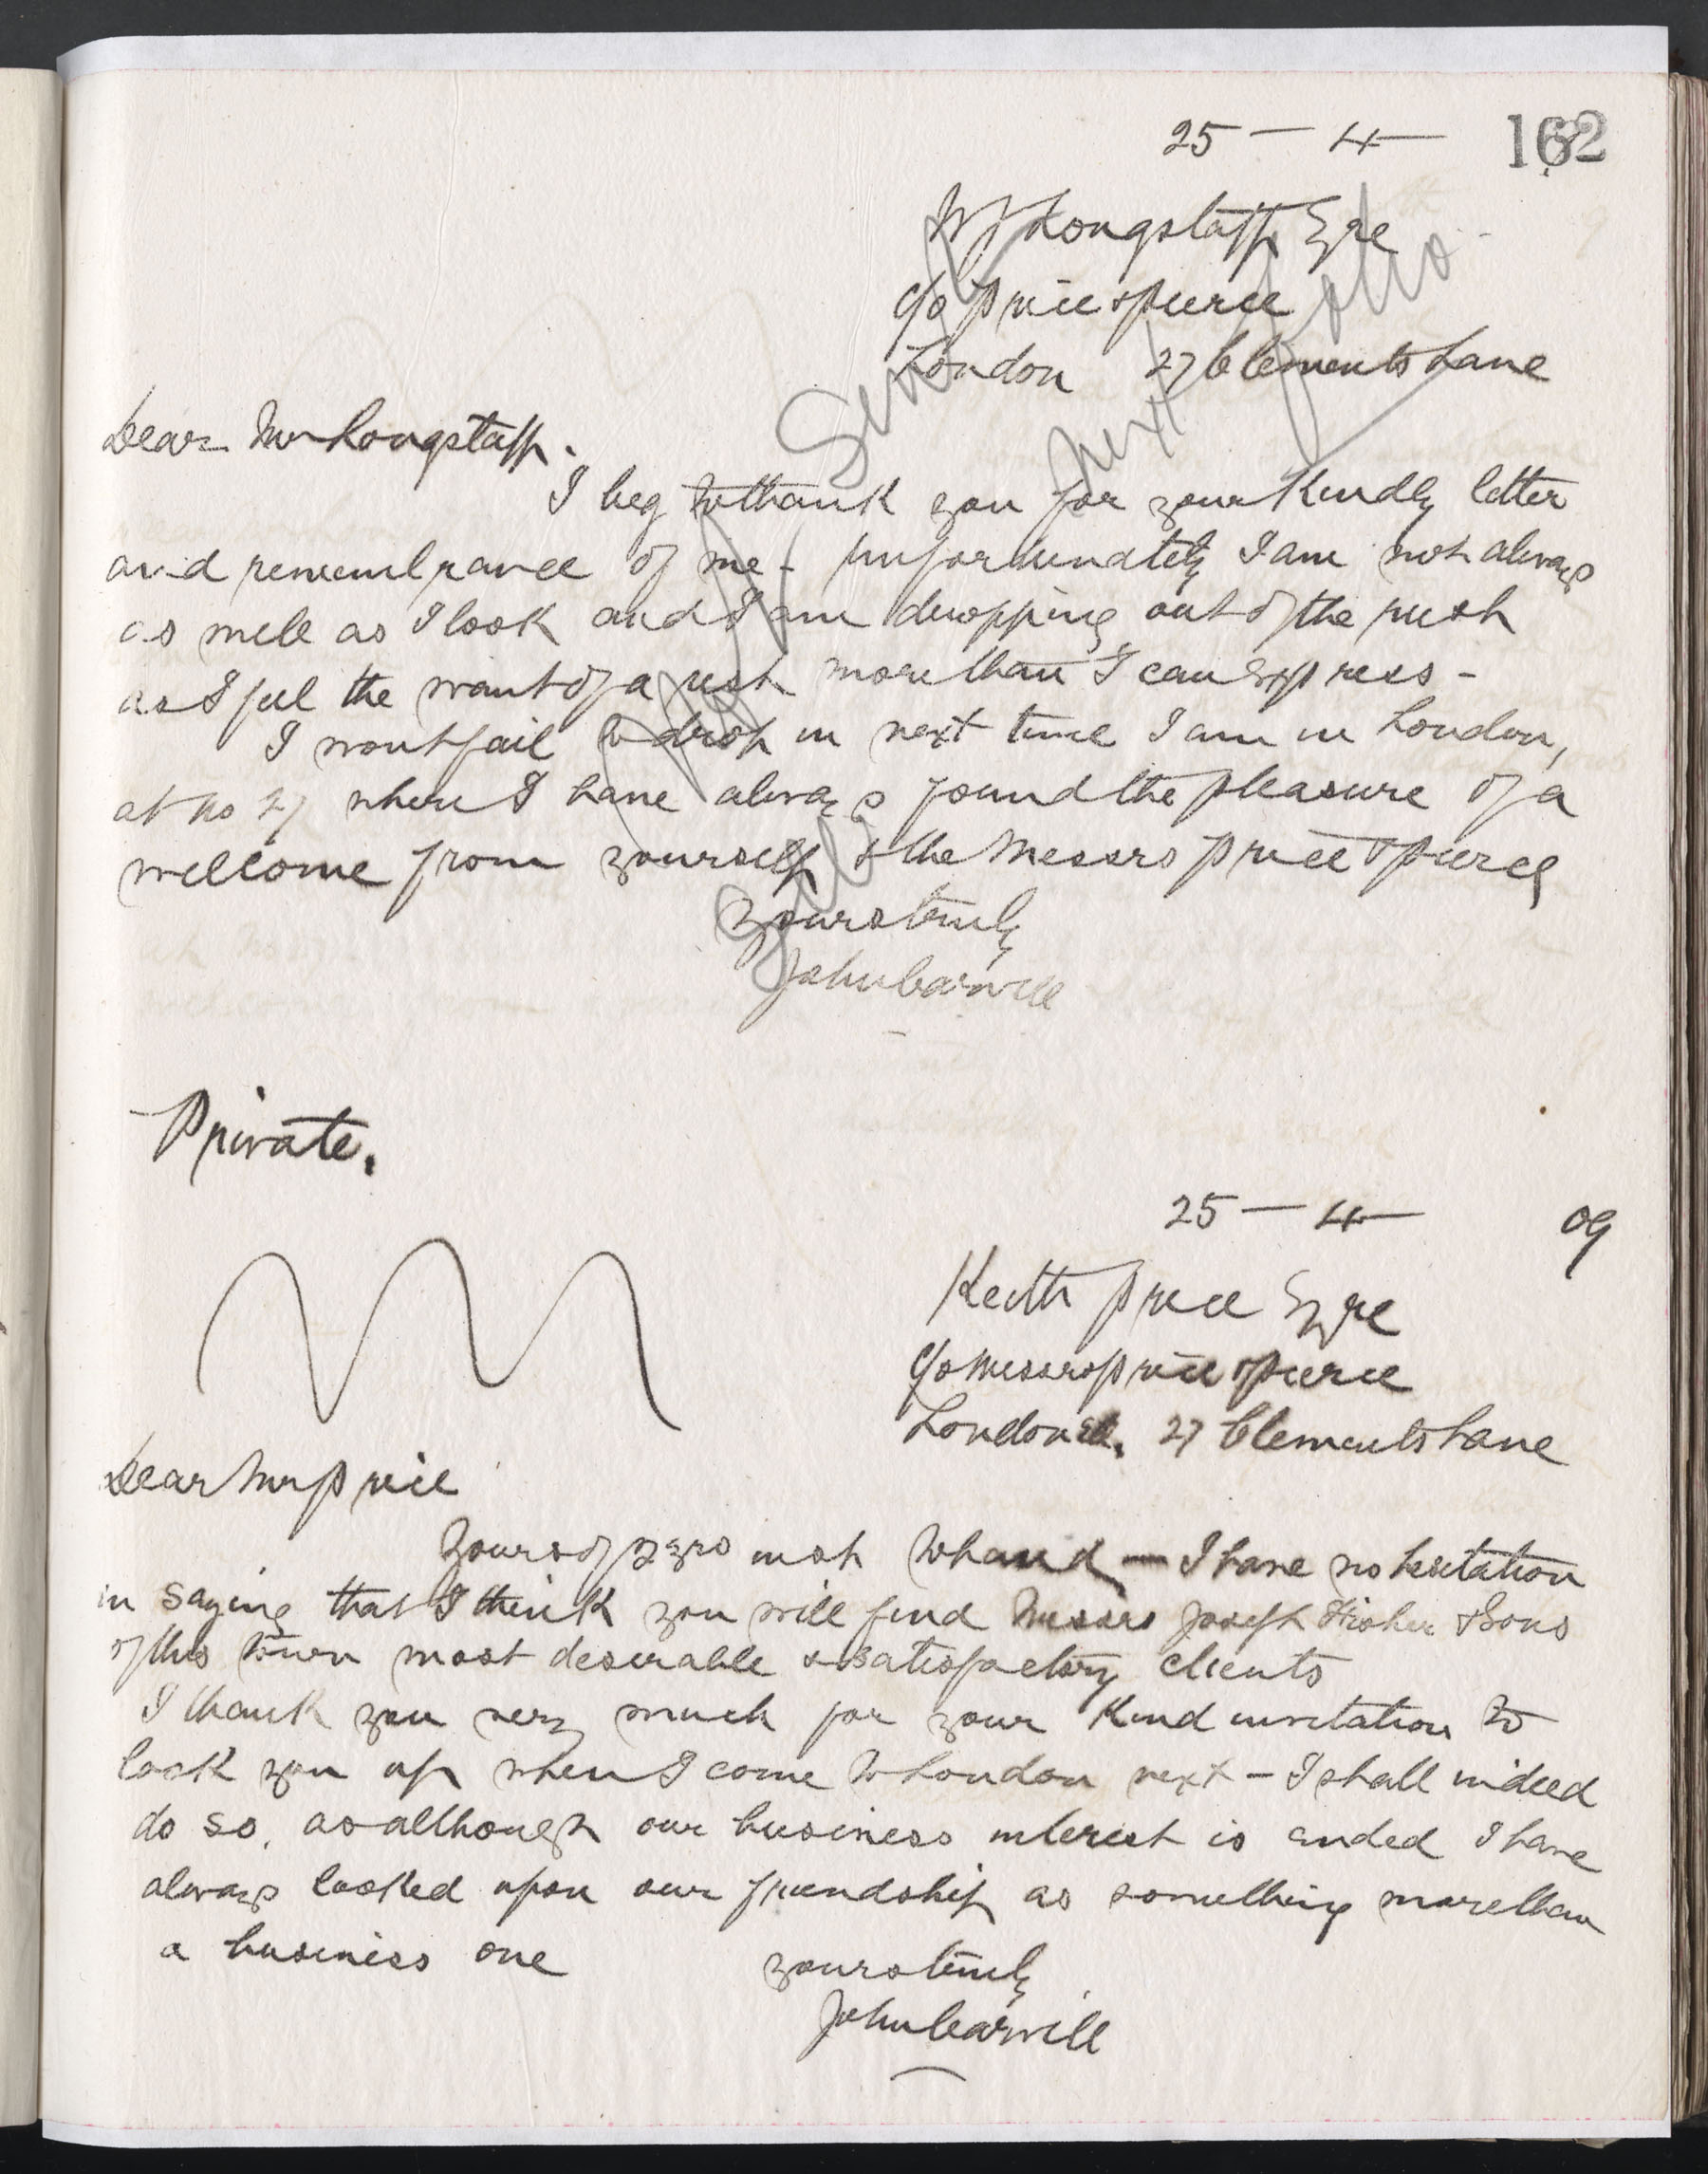 162
25 — 4 —
W J Longstaff Esqre
c/o Price & Pierce
London 27 Clements Lane
Dear Mr Longstaff.
I beg to thank you for your Kindly letter
and remembrance of me - unfortunately I am not always
as well as I look and I am dropping out of the rush
as I feel the want of a rest more than I can Express -
I wont fail to drop in next time I am in London,
at No 27 where I have always found the pleasure of a
wellcome from yourself & the Messrs Price & Pierce
yours truly
John Carvill
next folio
Private.
25 — 4 — 09
Keith Price Esqre
c/o Messrs Price & Pierce
London 27 Clements Lane
Dear Mr Price
Yours of 23rd inst to hand — I have no hesitation
in saying that I think you will find Messrs Joseph Fisher & Sons
of this town most desirable & satisfactory clients
I thank you very much for your Kind invitation to
look you up when I come to London next - I shall indeed
do so, as although our business interest is ended I have
always looked upon our friendship as something more than
a business one
yours truly
John Carvill